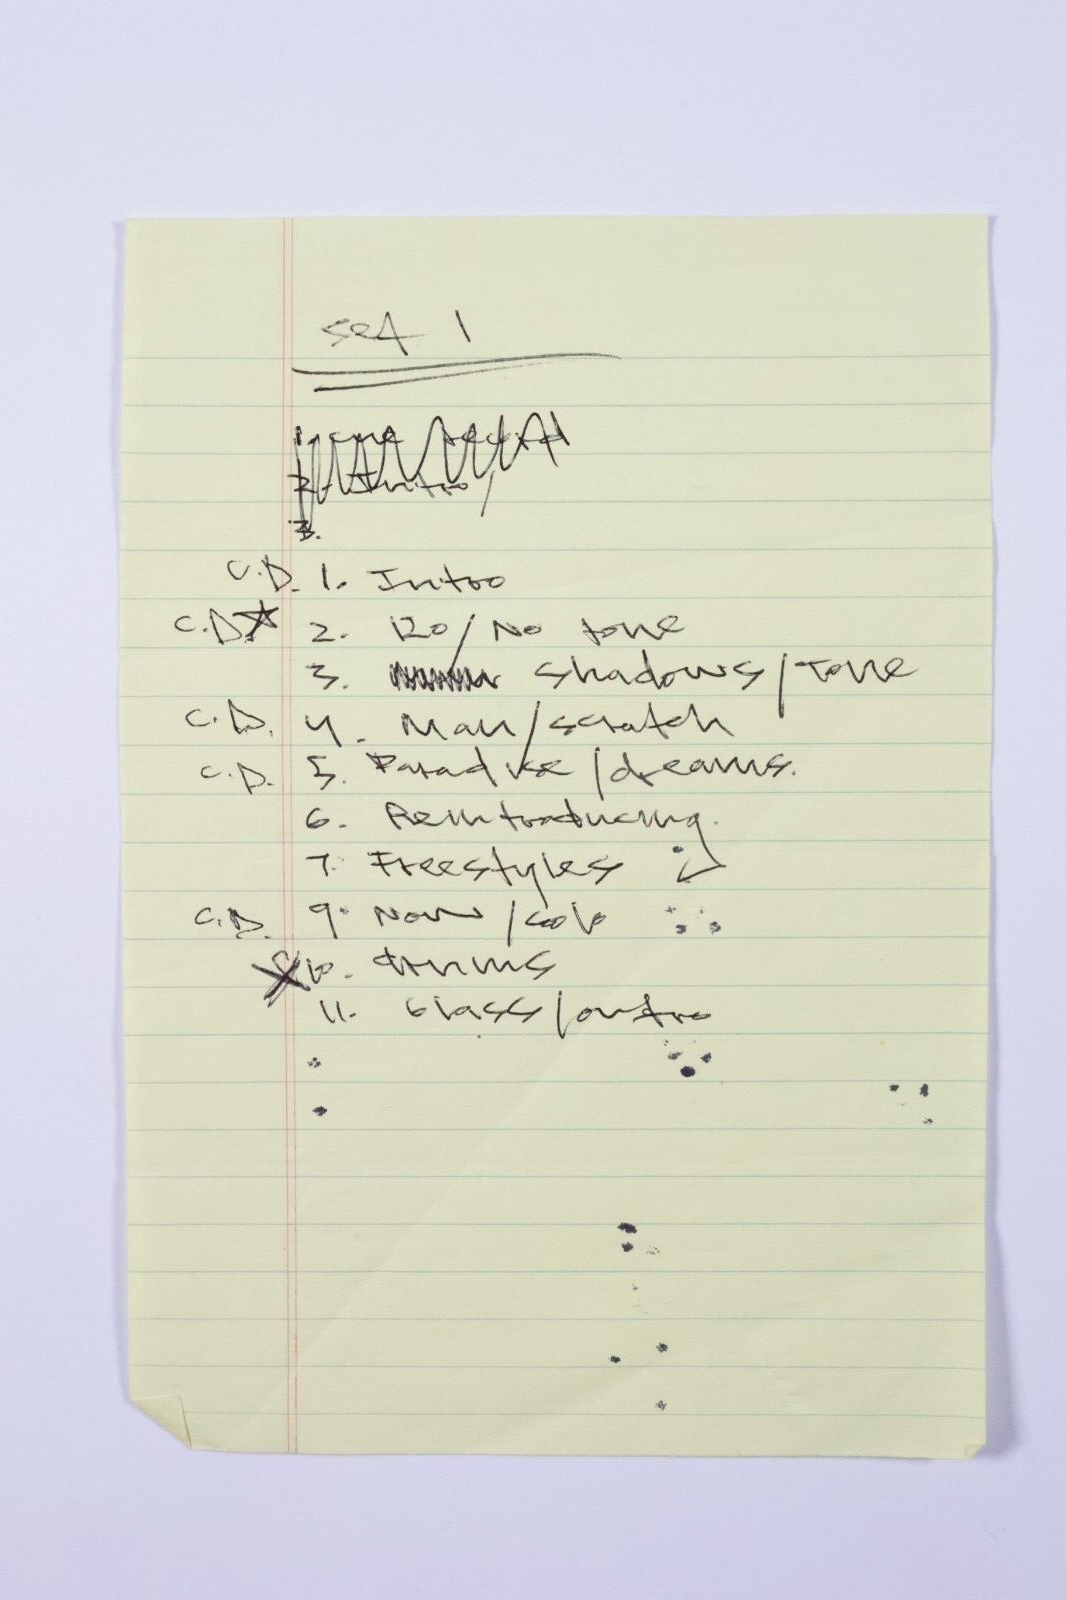 set 1
2. Intro/
3.
C.D. 1. Intro
C.D. ☆ 2. 120/No tone
3. shadows/Tone
C.D. 4. Man/scratch
C.D. 5. Paradise/dreams.
6. Reintroducing.
7. Freestyles
C.D. 9. Now/solo
10. drums
11. Glass/outro